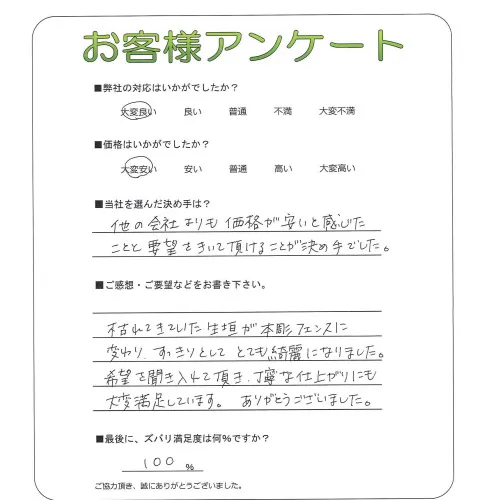 お客様アンケート
■弊社の対応はいかがでしたか？
大変良い 良い 普通 不満 大変不満
■価格はいかがでしたか？
大変安い 安い 普通 高い 大変高い
■当社を選んだ決め手は？
他の会社よりも価格が安いと感じた
ことと要望をきいて頂けることが決め手でした。
■ご感想・ご要望などをお書き下さい。
枯れてきていた生垣が本彫フェンスに
変わり、すっきりとしてとても綺麗になりました。
希望を聞き入れて頂き、丁寧な仕上がりにも
大変満足しています。 ありがとうございました。
■最後に、ズバリ満足度は何％ですか？
100 ％
ご協力頂き、誠にありがとうございました。